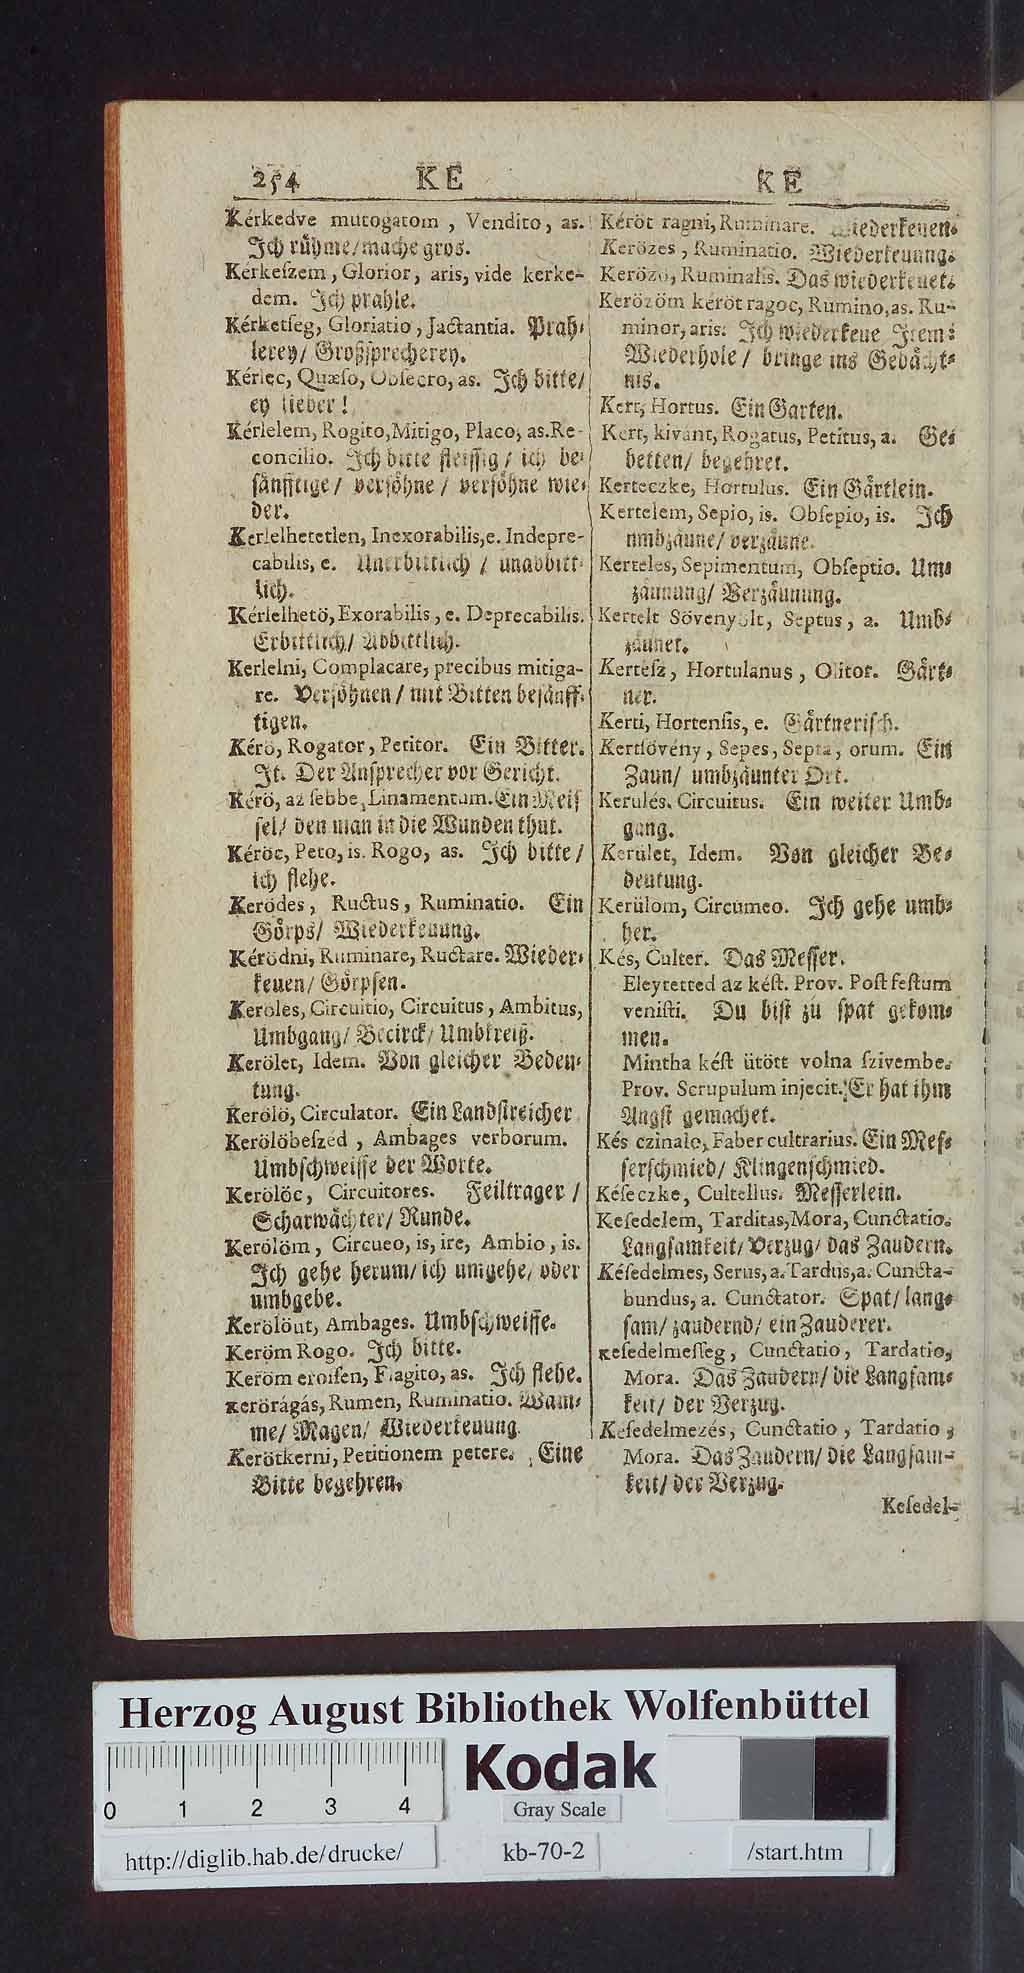 254 KE KE
Kérkedve mutogatom, Vendito, as.
Ich rühme/ mache gros.
Kérkeſzem, Glorior, aris, vide kerke-
dem. Ich prahle.
Kérketſeg, Gloriatio, Jactantia. Prah-
lerey/ Großſprecherey.
Kérlec, Quæſo, Obſecro, as. Ich bitte/
ey lieber!
Kérlelem, Rogito, Mitigo, Placo, as. Re-
concilio. Ich bitte fleiſſig/ ich be-
ſänfftige/ verſöhne/ verſöhne wie-
der.
Kerlelhetetlen, Inexorabilis, e. Indepre-
cabilis, e. Unerbittlich/ unabbitt-
lich.
Kérlelhetö, Exorabilis, e. Deprecabilis.
Erbittlich/ Abbittlich.
Kerlelni, Complacare, precibus mitiga-
re. Verſöhnen/ mit Bitten beſänff-
tigen.
Kérö, Rogator, Petitor. Ein Bitter.
It. Der Anſprecher vor Gericht.
Kérö, az ſebbe, Linamentum. Ein Meiſ
ſel/ den man in die Wunden thut.
Kéröc, Peto, is. Rogo, as. Ich bitte/
ich flehe.
Kerödes, Ructus, Ruminatio. Ein
Görps/ Wiederkeuung.
Kérödni, Ruminare, Ructare. Wieder-
keuen/ Görpſen.
Keröles, Circuitio, Circuitus, Ambitus,
Umbgang/ Becirck/ Umbkreiß.
Kerölet, Idem. Von gleicher Bedeu-
tung.
Kerölö, Circulator. Ein Landſtreicher
Kerölöbeſzed, Ambages verborum.
Umbſchweiffe der Worte.
Kerölöc, Circuitores. Feiltrager/
Scharwächter/ Runde.
Kerölöm, Circueo, is, ire, Ambio, is.
Ich gehe herum/ ich umgehe/ oder
umbgebe.
Kerölöut, Ambages. Umbſchweiffe.
Keröm Rogo. Ich bitte.
Keröm eroiſen, Flagito, as. Ich flehe.
Kerörágás, Rumen, Ruminatio. Wam-
me/ Magen/ Wiederkeuung.
Kerötkerni, Petitionem petere. Eine
Bitte begehren.
Kéröt ragni, Ruminare. Wiederkeuen.
Kerözes, Ruminatio. Wiederkeuung.
Kerözö, Ruminalis. Das wiederkeuet.
Kerözöm keröt ragoc, Rumino, as. Ru-
minor, aris. Ich wiederkeue Item:
Wiederhole/ bringe ins Gedächt-
nis.
Kert, Hortus. Ein Garten.
Kert, kivánt, Rogatus, Petitus, a. Ge-
betten/ begehret.
Kerteczke, Hortulus. Ein Gärtlein.
Kertelem, Sepio, is. Obſepio, is. Ich
umbzäune/ verzäune.
Kerteles, Sepimentum, Obſeptio. Um-
zäunung/ Verzäunung.
Kertelt Sövenyölt, Septus, a. Umb-
zäunet.
Kerteſz, Hortulanus, Olitor. Gärt-
ner.
Kerti, Hortenſis, e. Gärtneriſch.
Kertſövény, Sepes, Septa, orum. Ein
Zaun/ umbzäunter Ort.
Kerulés, Circuitus. Ein weiter Umb-
gang.
Kerület, Idem. Von gleicher Be-
deutung.
Kerülom, Circumeo. Ich gehe umb-
her.
Kés, Culter. Das Meſſer.
Eleytetted az kéſt. Prov. Poſt feſtum
veniſti. Du biſt zu ſpat gekom-
men.
Mintha kéſt ütött volna ſzivembe.
Prov. Scrupulum injecit. Er hat ihm
Angſt gemachet.
Kés czinalo, Faber cultrarius. Ein Meſ-
ſerſchmied/ Klingenſchmied.
Kéſeczke, Cultellus. Meſſerlein.
Keſedelem, Tarditas, Mora, Cunctatio.
Langſamkeit/ Verzug/ das Zaudern.
Késedelmes, Serus, a. Tardus, a. Cuncta-
bundus, a. Cunctator. Spat/ lang-
ſam/ zaudernd/ ein Zauderer.
Keſedelmeſſeg, Cunctatio, Tardatio,
Mora. Das Zaudern/ die Langſam-
keit/ der Verzug.
Keſedelmezés, Cunctatio, Tardatio,
Mora. Das Zaudern/ die Langſam-
keit/ der Verzug.
Keſedel-
Herzog August Bibliothek Wolfenbüttel
Kodak
0 1 2 3 4
Gray Scale
http://diglib.hab.de/drucke/ kb-70-2 /start.htm